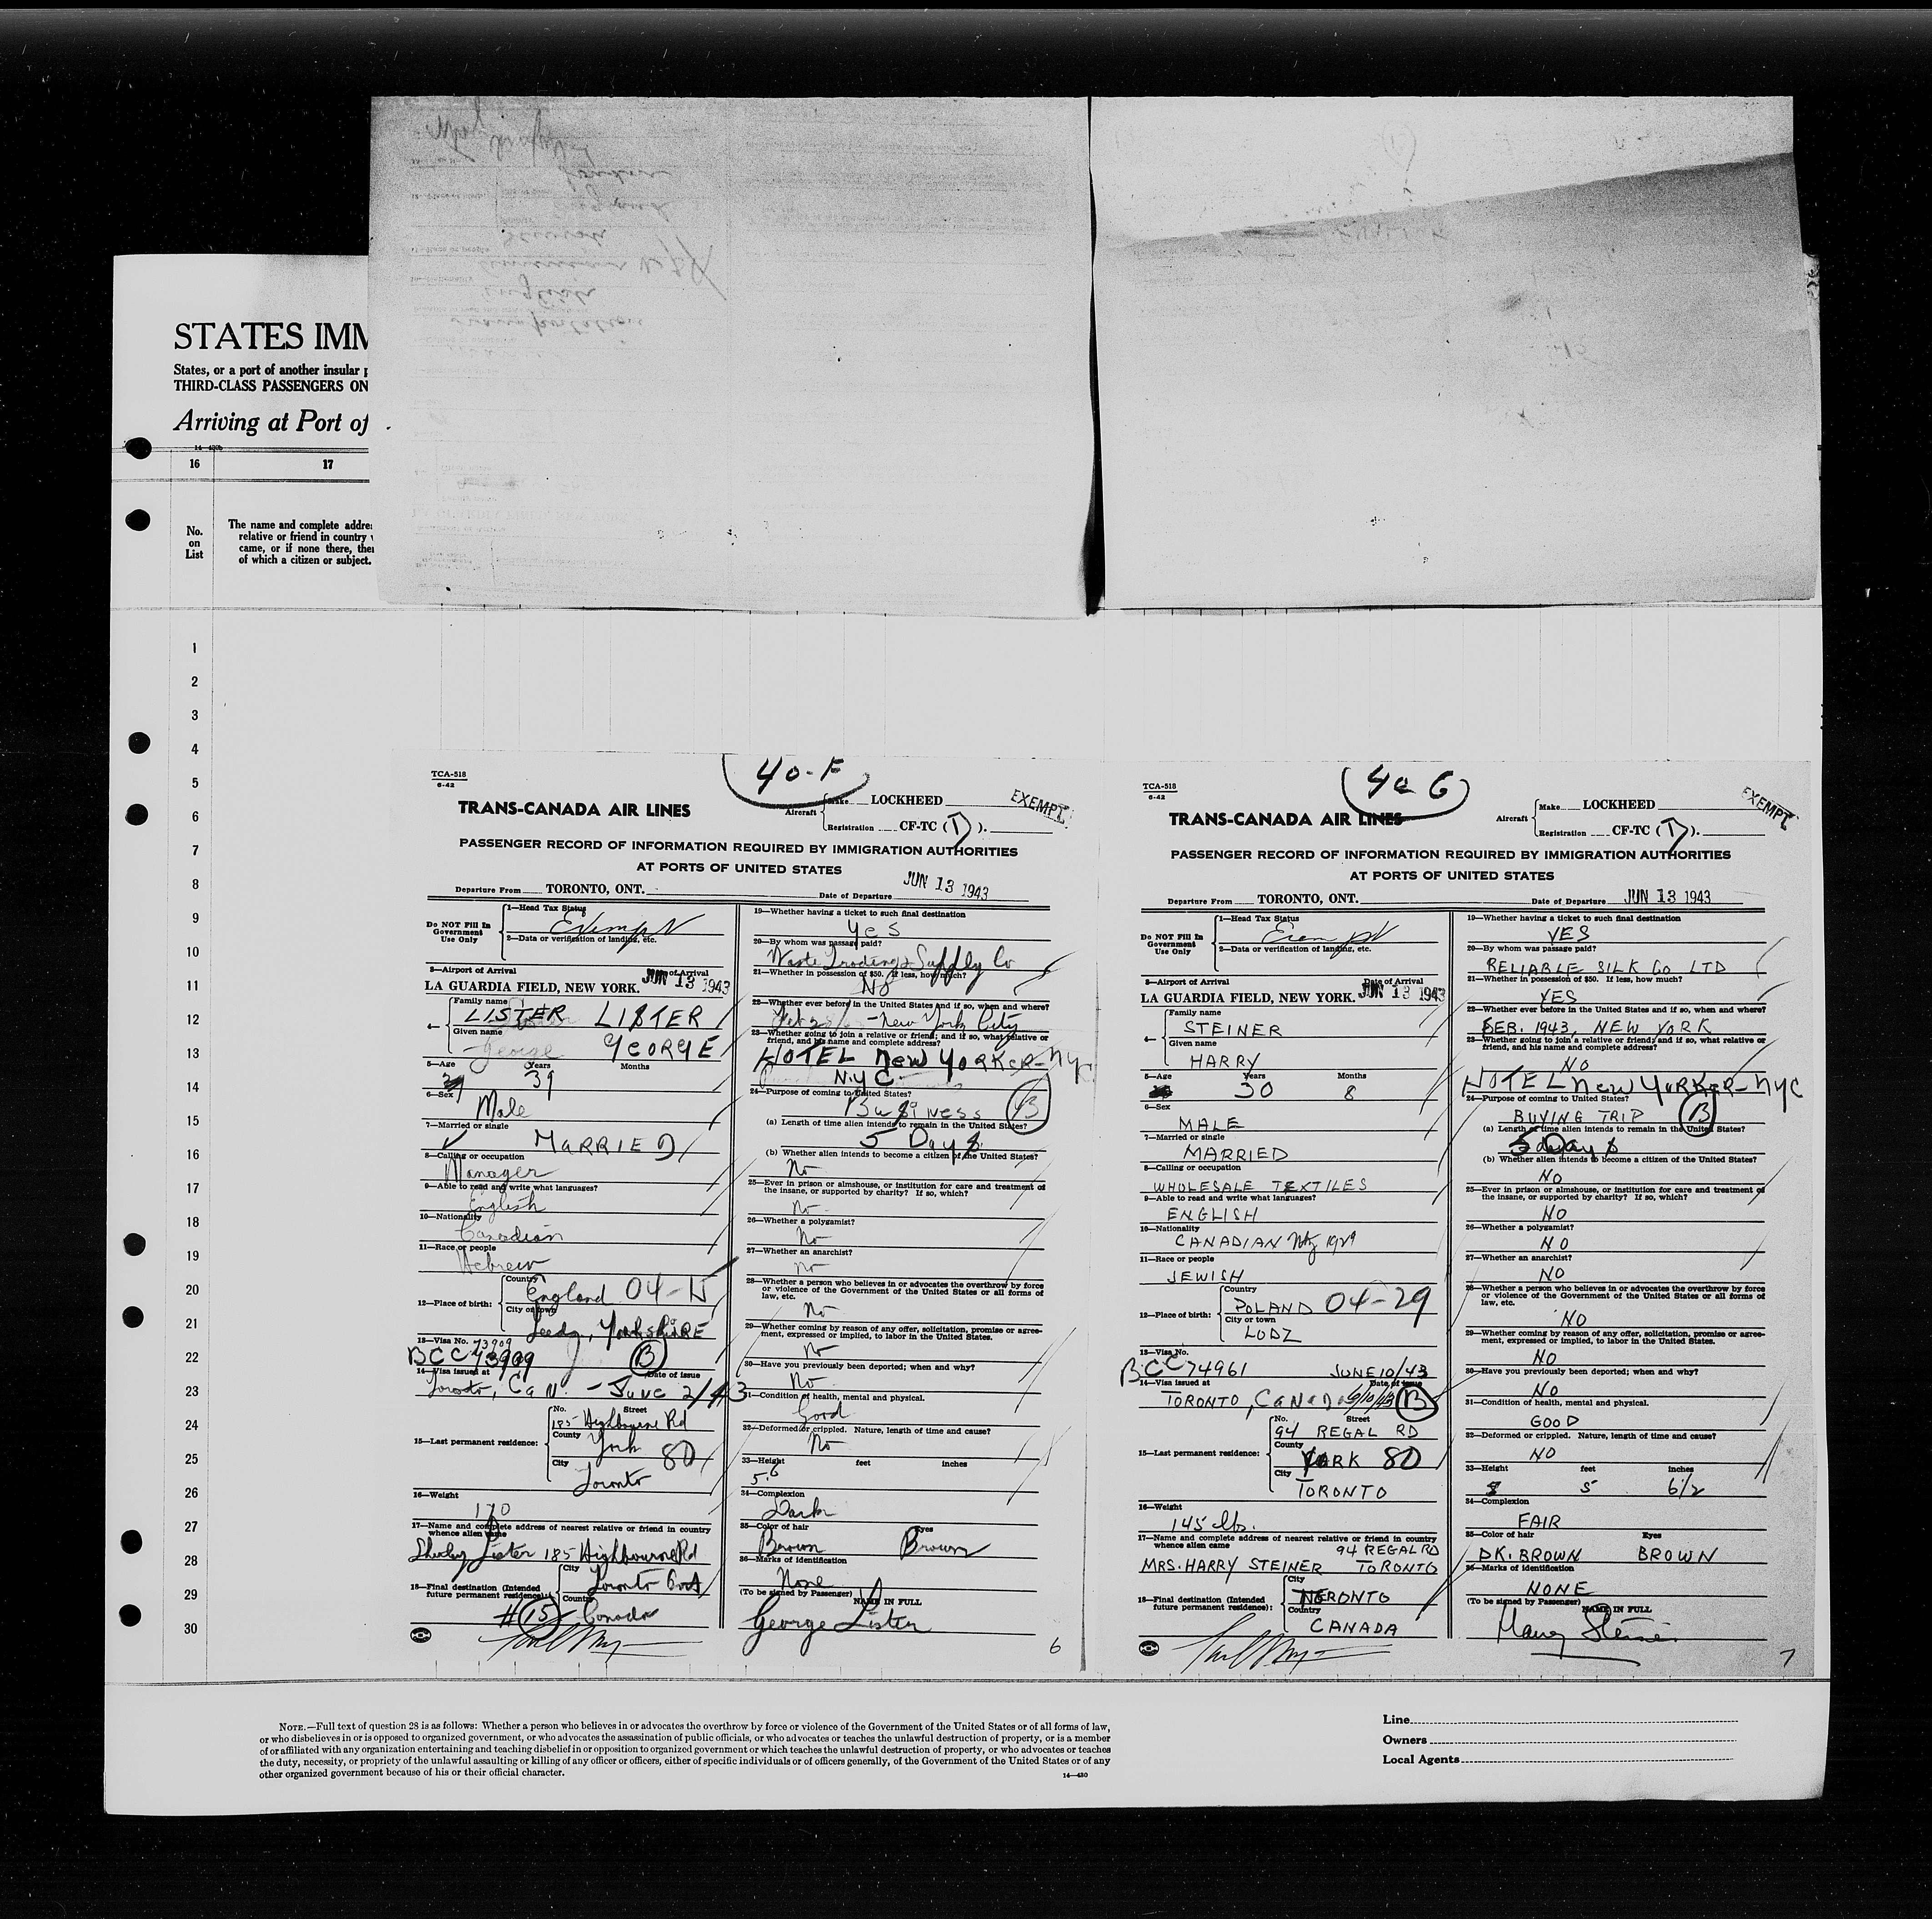 STATES IMM
States, or a port of another insular p
THIRD-CLASS PASSENGERS ON
Arriving at Port of
16 17
No. on List
The name and complete addre
relative or friend in country
came, or if none there, the
of which a citizen or subject.
1
2
3
4
5
6
7
8
9
10
11
12
13
14
15
16
17
18
19
20
21
22
23
24
25
26
27
28
29
30
TCA-518
6-42
40-F
TRANS-CANADA AIR LINES
Aircraft
Make LOCKHEED
Registration CF-TC (T).
EXEMPT.
PASSENGER RECORD OF INFORMATION REQUIRED BY IMMIGRATION AUTHORITIES
AT PORTS OF UNITED STATES
Departure From TORONTO, ONT.
Date of Departure JUN 13 1943
Do NOT Fill In
Government
Use Only
1—Head Tax Status
Exempt
2—Data or verification of landing, etc.
3—Airport of Arrival
Date of Arrival
LA GUARDIA FIELD, NEW YORK. JUN 13 1943
4—
Family name
LISTER LISTER
Given name
George GEORGE
5—Age Years Months
39
6—Sex
Male
7—Married or single
MARRIED
8—Calling or occupation
Manager
9—Able to read and write what languages?
English
10—Nationality
Canadian
11—Race or people
Hebrew
12—Place of birth:
Country
England 04-15
City or town
Leeds, Yorkshire
13—Visa No. 73909
BCC 73909 B
14—Visa issued at Date of issue
Toronto, Can. - June 2/43
15—Last permanent residence:
No. Street
185 Highbourne Rd
County
York 80
City
Toronto
16—Weight
170
17—Name and complete address of nearest relative or friend in country
whence alien came
Shirley Lister 185 Highbourne Rd
18—Final destination (Intended
future permanent residence):
City
Toronto Ont
Country
Canada
#15
19—Whether having a ticket to such final destination
Yes
20—By whom was passage paid?
Waste Trading & Supply Co
21—Whether in possession of $50. If less, how much?
No
22—Whether ever before in the United States and if so, when and where?
- New York City
23—Whether going to join a relative or friend; and if so, what relative or
friend, and his name and complete address?
HOTEL New Yorker - NYC
N.Y.C.
24—Purpose of coming to United States?
Business B
(a) Length of time alien intends to remain in the United States?
5 Days
(b) Whether alien intends to become a citizen of the United States?
No
25—Ever in prison or almshouse, or institution for care and treatment of
the insane, or supported by charity? If so, which?
No
26—Whether a polygamist?
No
27—Whether an anarchist?
No
28—Whether a person who believes in or advocates the overthrow by force
or violence of the Government of the United States or all forms of
law, etc.
No
29—Whether coming by reason of any offer, solicitation, promise or agree-
ment, expressed or implied, to labor in the United States.
No
30—Have you previously been deported; when and why?
No
31—Condition of health, mental and physical.
Good
32—Deformed or crippled. Nature, length of time and cause?
No
33—Height feet inches
5.6
34—Complexion
Dark
35—Color of hair Eyes
Brown Brown
36—Marks of identification
None
(To be signed by Passenger) NAME IN FULL
George Lister
6
TCA-518
6-42
40 G
TRANS-CANADA AIR LINES
Aircraft
Make LOCKHEED
Registration CF-TC (T).
EXEMPT.
PASSENGER RECORD OF INFORMATION REQUIRED BY IMMIGRATION AUTHORITIES
AT PORTS OF UNITED STATES
Departure From TORONTO, ONT.
Date of Departure JUN 13 1943
Do NOT Fill In
Government
Use Only
1—Head Tax Status
Exempt
2—Data or verification of landing, etc.
3—Airport of Arrival
Date of Arrival
LA GUARDIA FIELD, NEW YORK. JUN 13 1943
4—
Family name
STEINER
Given name
HARRY
5—Age Years Months
30 8
6—Sex
MALE
7—Married or single
MARRIED
8—Calling or occupation
WHOLESALE TEXTILES
9—Able to read and write what languages?
ENGLISH
10—Nationality
CANADIAN Ntz 1929
11—Race or people
JEWISH
12—Place of birth:
Country
POLAND 04-29
City or town
LODZ
13—Visa No.
BCC 74961 JUNE 10/43
14—Visa issued at Date of issue
TORONTO, CANADA 6/10/43 B
15—Last permanent residence:
No. Street
94 REGAL RD
County
YORK 80
City
TORONTO
16—Weight
145 lbs.
17—Name and complete address of nearest relative or friend in country
whence alien came
94 REGAL RD
MRS. HARRY STEINER TORONTO
18—Final destination (Intended
future permanent residence):
City
TORONTO
Country
CANADA
19—Whether having a ticket to such final destination
YES
20—By whom was passage paid?
RELIABLE SILK CO LTD
21—Whether in possession of $50. If less, how much?
YES
22—Whether ever before in the United States and if so, when and where?
FEB. 1943, NEW YORK
23—Whether going to join a relative or friend; and if so, what relative or
friend, and his name and complete address?
NO
HOTEL New Yorker - NYC
24—Purpose of coming to United States?
BUYING TRIP B
(a) Length of time alien intends to remain in the United States?
5 Days
(b) Whether alien intends to become a citizen of the United States?
NO
25—Ever in prison or almshouse, or institution for care and treatment of
the insane, or supported by charity? If so, which?
NO
26—Whether a polygamist?
NO
27—Whether an anarchist?
NO
28—Whether a person who believes in or advocates the overthrow by force
or violence of the Government of the United States or all forms of
law, etc.
NO
29—Whether coming by reason of any offer, solicitation, promise or agree-
ment, expressed or implied, to labor in the United States.
NO
30—Have you previously been deported; when and why?
NO
31—Condition of health, mental and physical.
GOOD
32—Deformed or crippled. Nature, length of time and cause?
NO
33—Height feet inches
5 6 1/2
34—Complexion
FAIR
35—Color of hair Eyes
DK. BROWN BROWN
36—Marks of identification
NONE
(To be signed by Passenger) NAME IN FULL
Harry Steiner
7
NOTE.—Full text of question 28 is as follows: Whether a person who believes in or advocates the overthrow by force or violence of the Government of the United States or of all forms of law,
or who disbelieves in or is opposed to organized government, or who advocates the assassination of public officials, or who advocates or teaches the unlawful destruction of property, or is a member
of or affiliated with any organization entertaining and teaching disbelief in or opposition to organized government or which teaches the unlawful destruction of property, or who advocates or teaches
the duty, necessity, or propriety of the unlawful assaulting or killing of any officer or officers, either of specific individuals or of officers generally, of the Government of the United States or of any
other organized government because of his or their official character.
14—430
Line
Owners
Local Agents